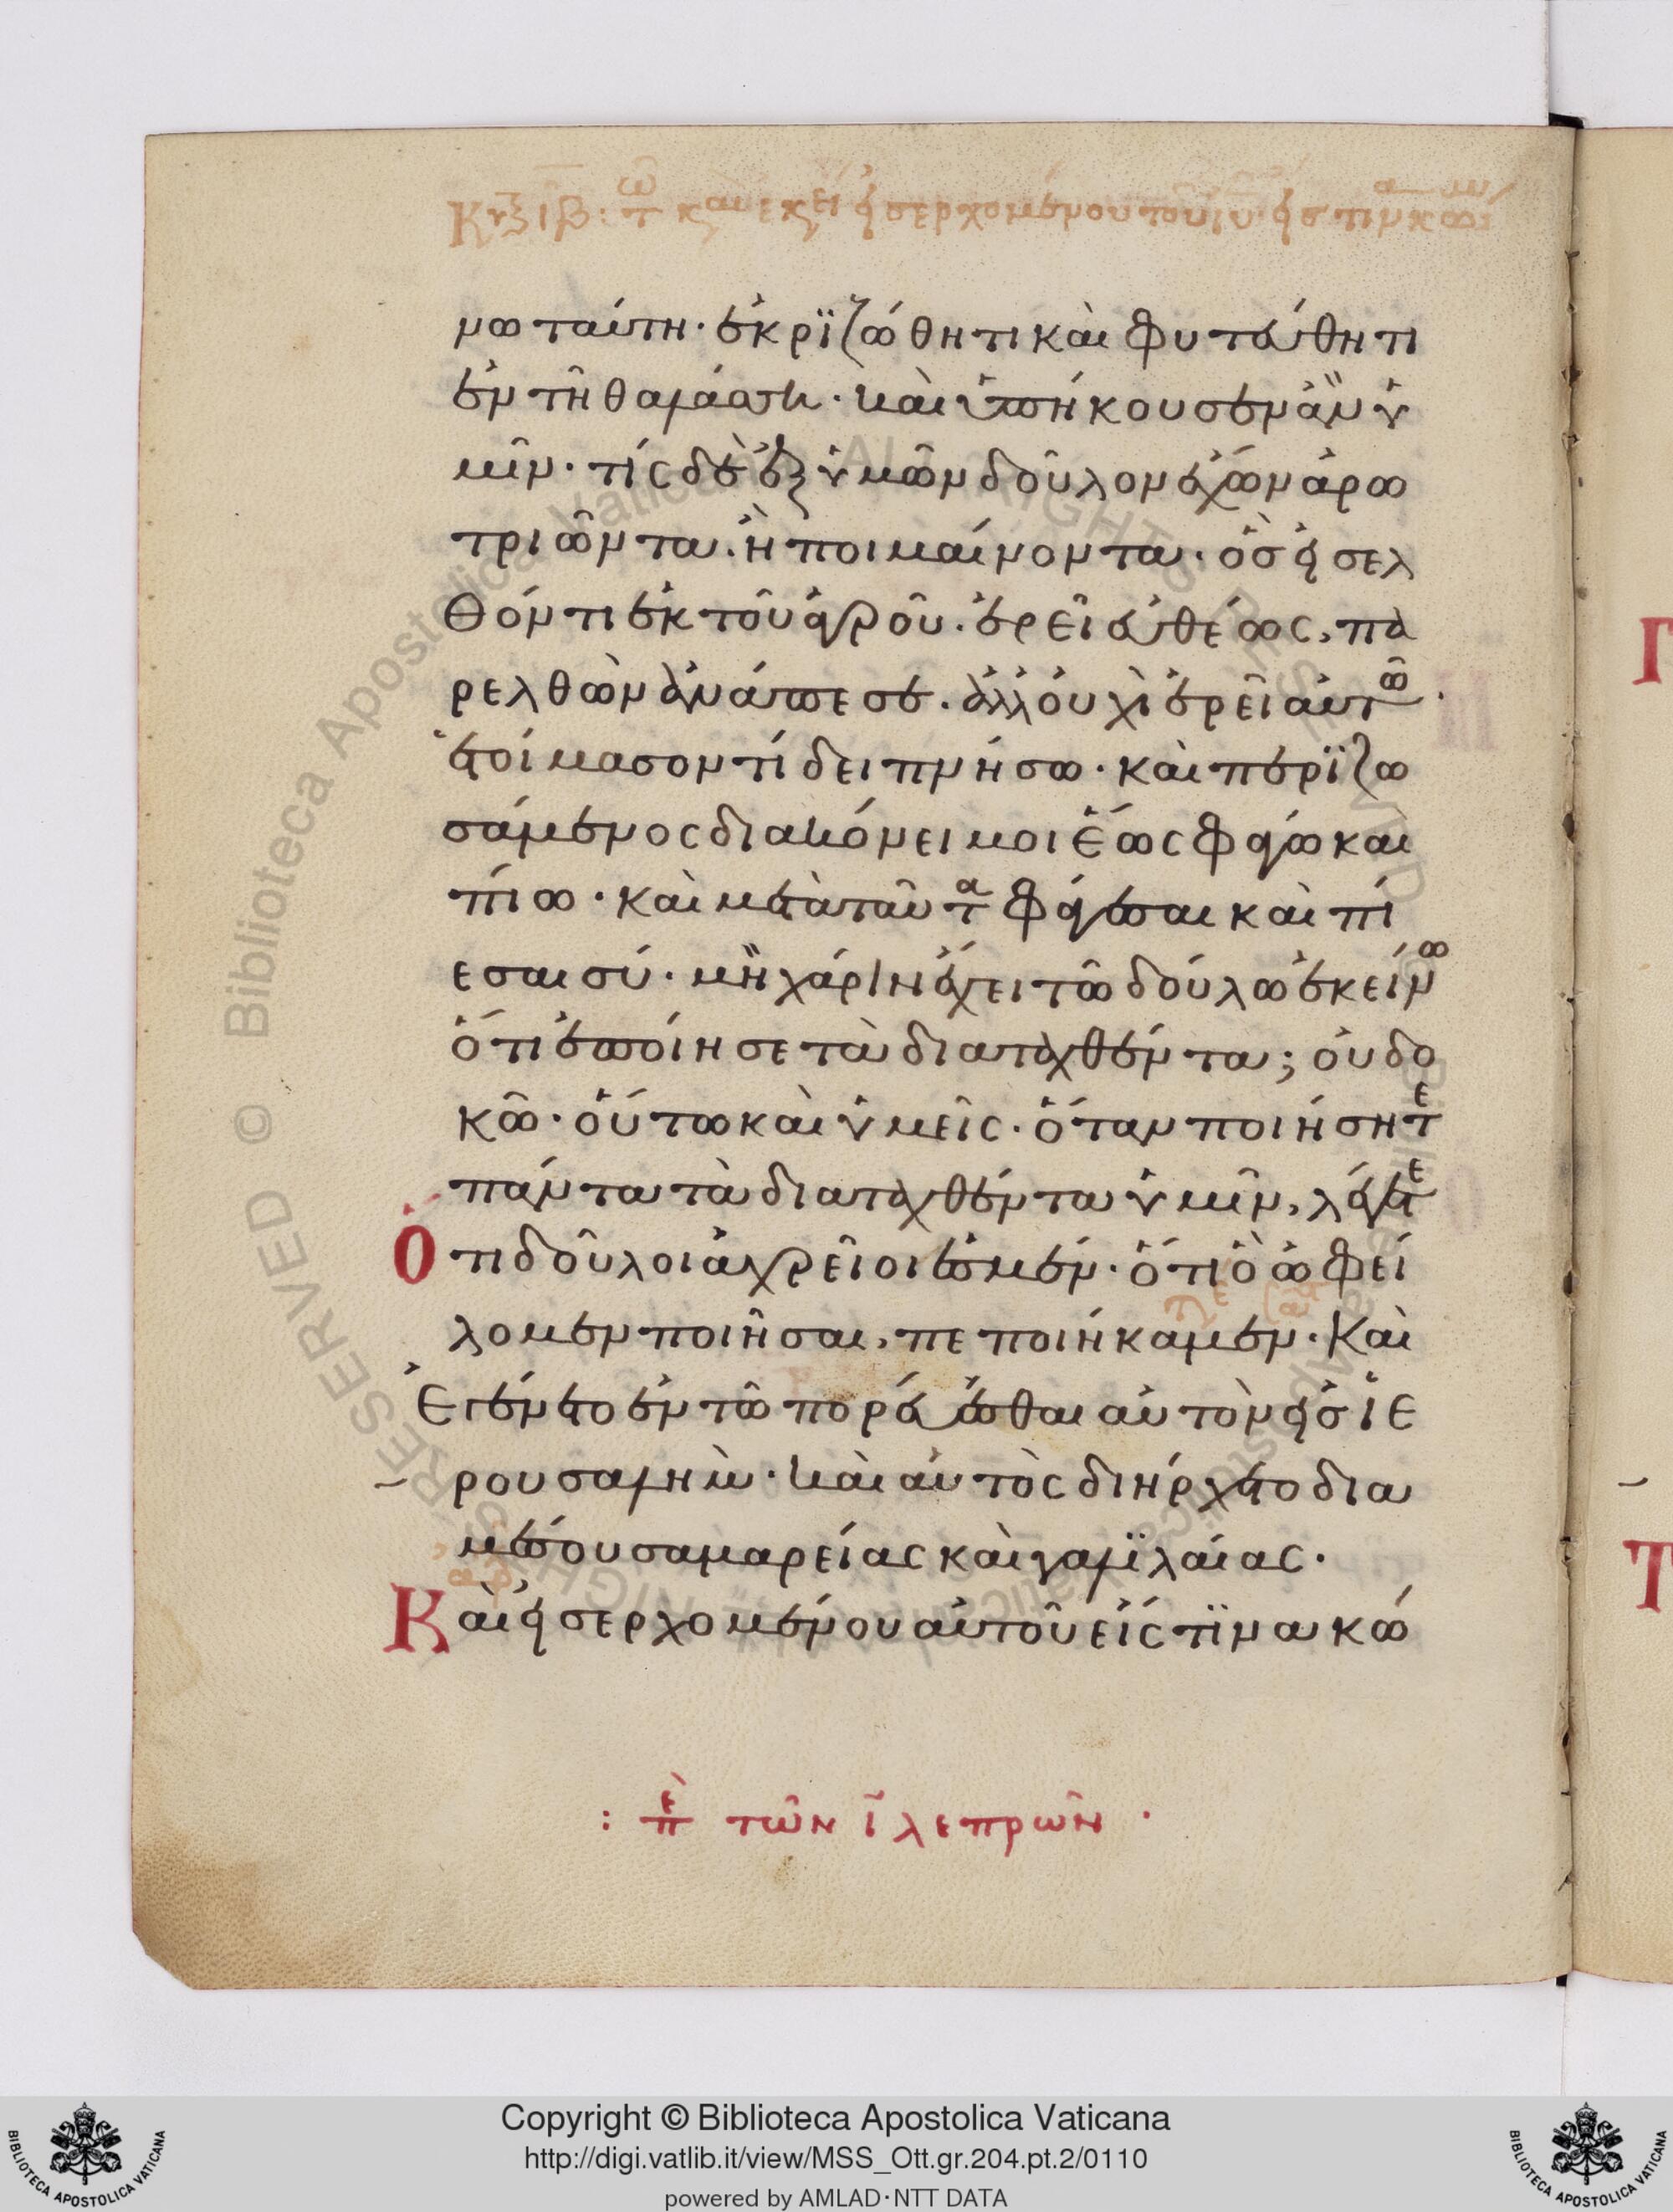 Κυ ξ ιβ: τω κ̀αι εκεί εἰσερχομένου τοῦ ιυ εἰς τινα κω
μω ταύτη· ἐκρϊζώθητι καὶ φυτεύθητι
ἐν τῆ θαλάσση· καὶ ὑπήκουσεν ἂν ὑ
μῖν· τίς δὲ ἐξ ὑμῶν δοῦλον ἔχων ἀρω
τριῶντα· ἢ ποιμαίνοντα· ὃσ εἰσελ
θόντι ἐκ τοῦ ἀγροῦ· ἐρεῖ εὐθέως, πα
ρελθὼν ἀνάπεσε· ἀλλ οὐχὶ ἐρεῖ αὐτῶ·
ἑτοίμασον τί δειπνήσω· καὶ περϊζω
σάμενος διακόνει μοι ἕως φάγω καὶ
πίω· καὶ μετὰ ταῦτα φάγεσαι καὶ πί
εσαι σύ· μὴ χάριν ἔχει τῶ δούλω ἐκείνω
ὅτι ἐποίησε τὰ διαταχθέντα; οὐ δο
κῶ· οὕτω καὶ ὑμεῖς· ὅταν ποιήσητε
πάντα τὰ διαταχθέντα ὑμῖν, λέγετε
Ὅτι δοῦλοι ἀχρεῖοι ἐσμέν· ὅτι ὃ ὠφεί
λομεν ποιῆσαι, πεποιήκαμεν· Καὶ
Ἐγένετο ἐν τῶ πορεύεσθαι αὐτὸν εἰσ ἱε
ρουσαλήμ· καὶ αὐτὸς διήρχετο δια
μέσου σαμαρείας καὶ γαλϊλαίας·
Καὶ εἰσερχομένου αὐτοῦ εἰς τϊνα κώ
: πε τῶν ῑ λεπρῶν ·
© Biblioteca Apostolica Vaticana
ALL RIGHTS RESERVED
Copyright © Biblioteca Apostolica Vaticana
http://digi.vatlib.it/view/MSS_Ott.gr.204.pt.2/0110
powered by AMLAD·NTT DATA
BIBLIOTECA APOSTOLICA VATICANA
BIBLIOTECA APOSTOLICA VATICANA